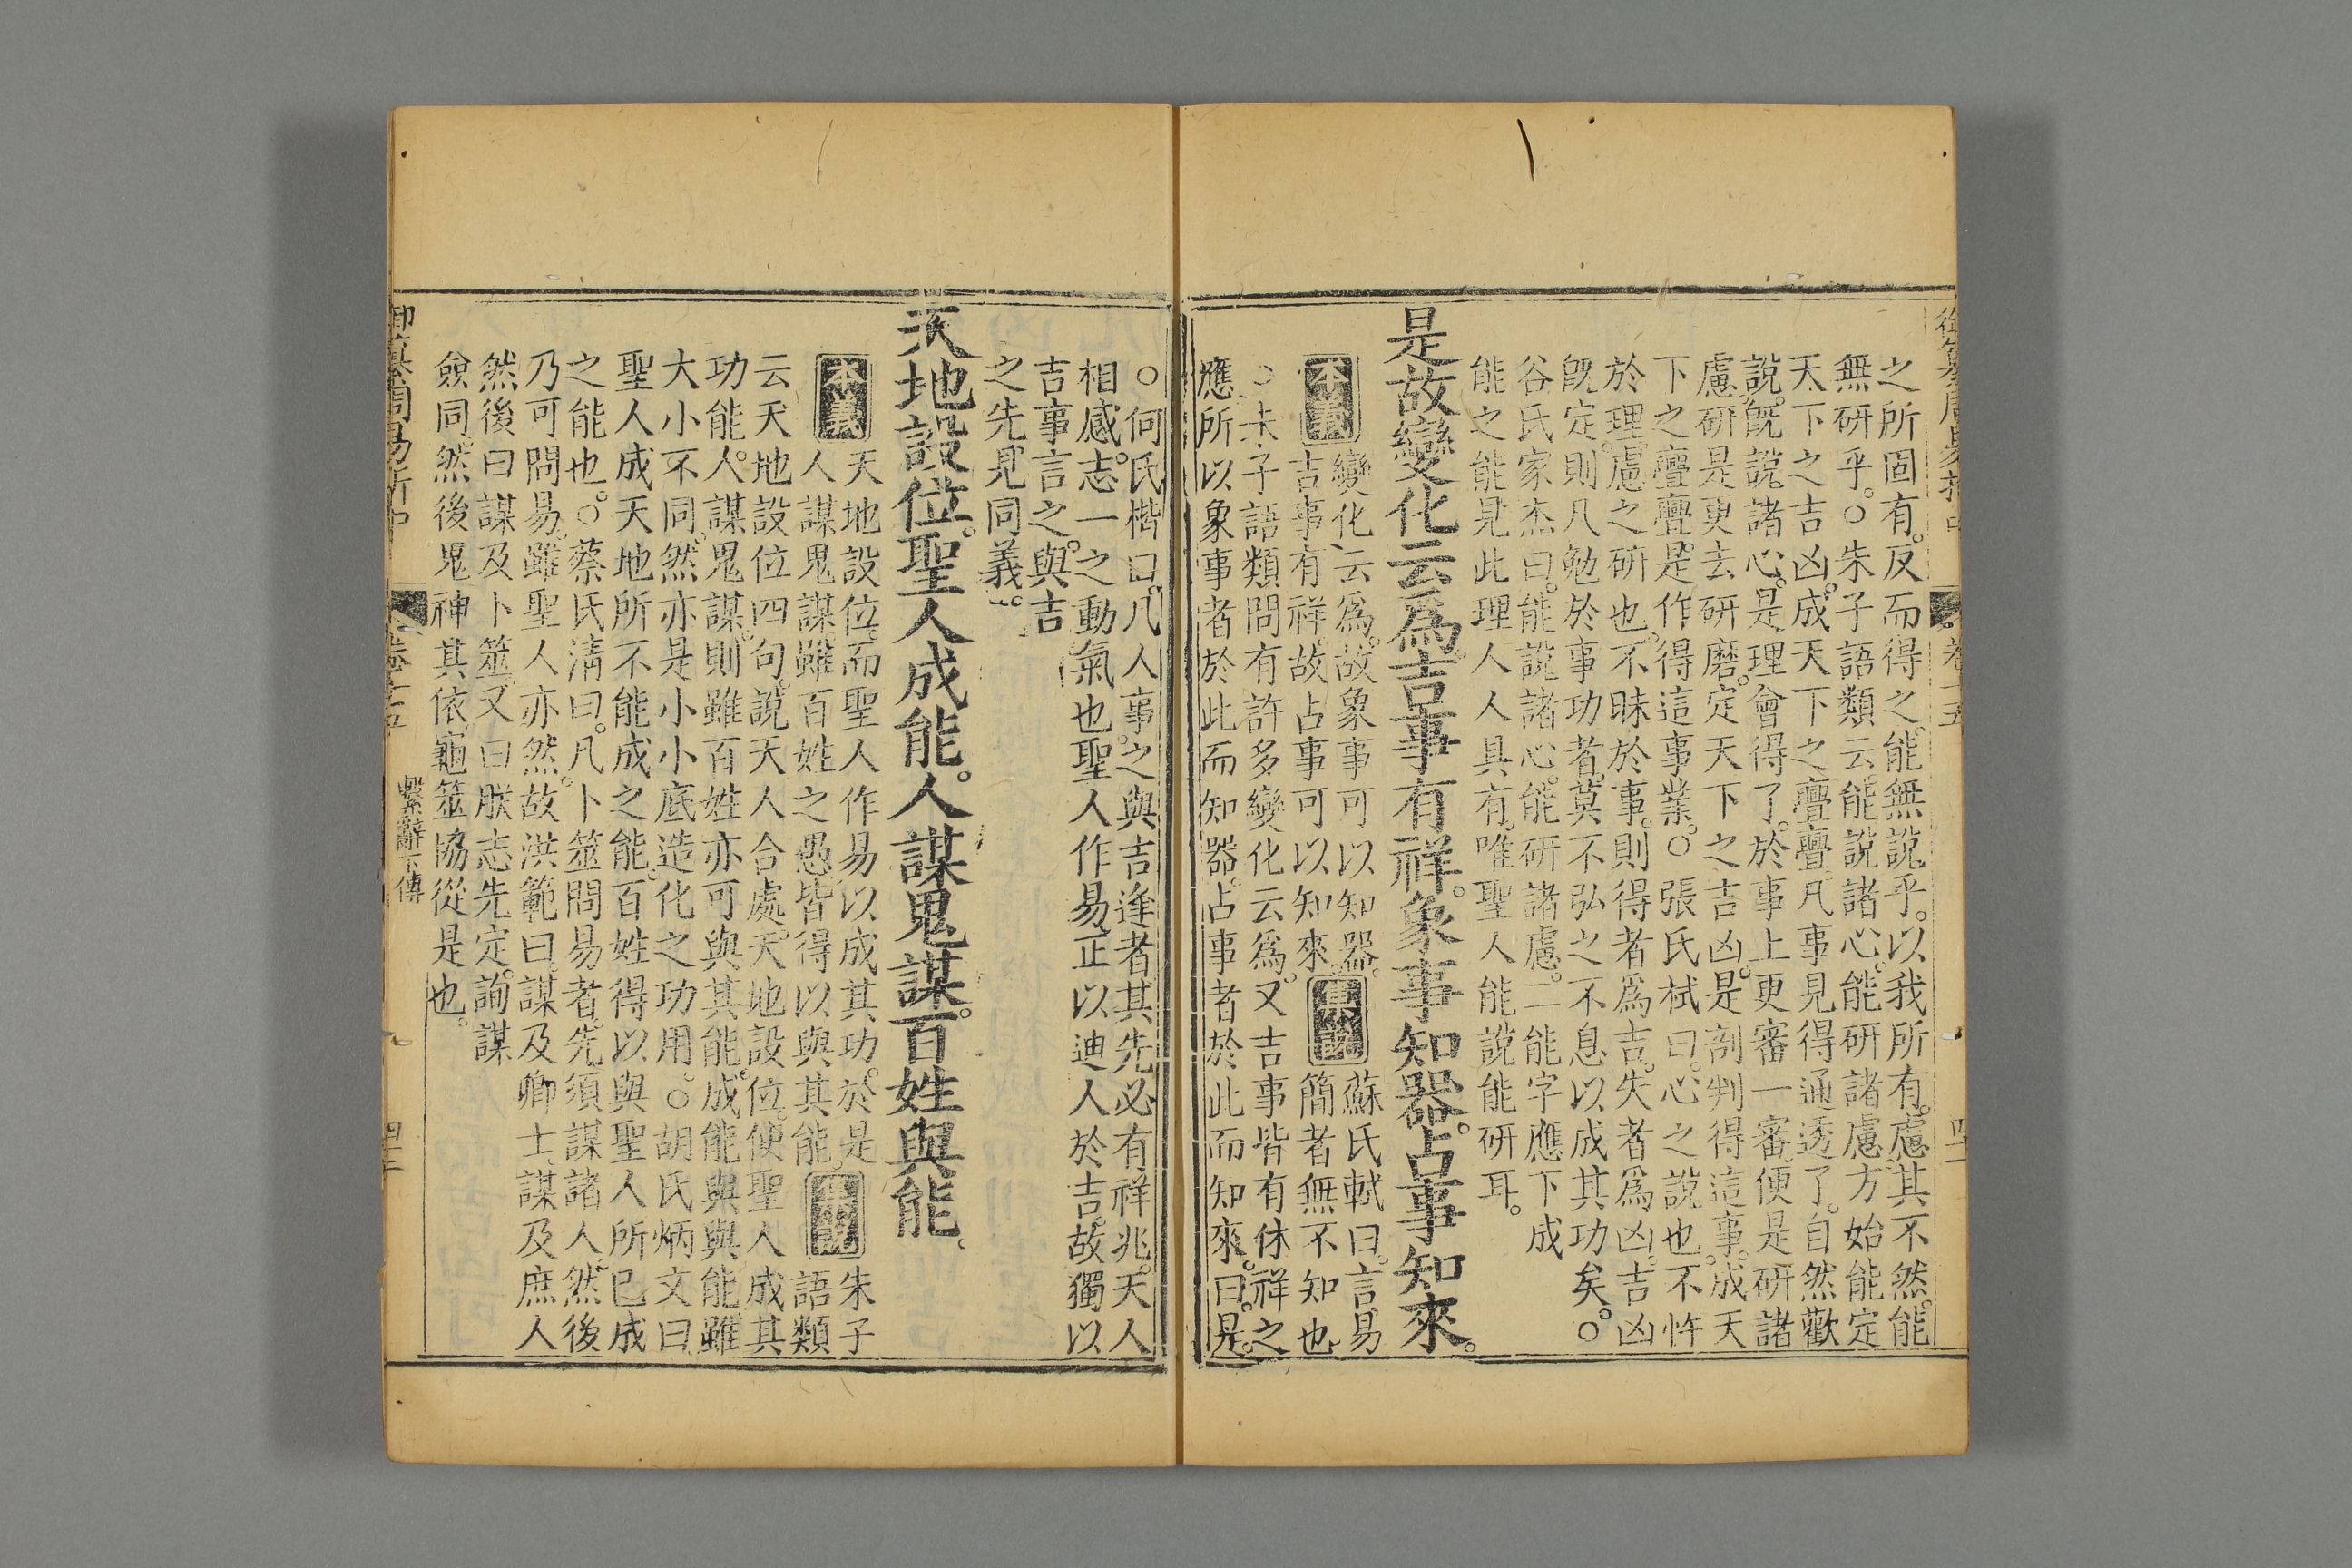 之所固有。反而得之。能無說乎。以我所有。慮其不然。能
無研乎。○朱子語類云。能說諸心。能研諸慮。方始能定
天下之吉凶。成天下之亹亹。凡事見得通透了。自然歡
說。既說諸心。是理會得了。於事上更審一審。便是研諸
慮。研是更去研磨。定天下之吉凶。是剖判得這事。成天
下之亹亹。是作得這事業。○張氏栻曰。心之說也。不忤
於理。慮之研也。不昧於事。則得者爲吉。失者爲凶。吉凶
既定。則凡勉於事功者。莫不弘之不息以成其功矣。○
谷氏家杰曰。能說諸心。能研諸慮。二能字應下成
能之能。見此理人人具有。唯聖人能說能研耳。
是故變化云爲。吉事有祥。象事知器。占事知來。
本義 變化云爲。故象事可以知器。
吉事有祥。故占事可以知來。
集說 蘇氏軾曰。言易
簡者無不知也
○朱子語類問有許多變化云爲。又吉事皆有休祥之
應所以象事者於此而知器。占事者於此而知來。曰。是。
○何氏楷曰。凡人事之與吉逢者其先必有祥兆。天人
相感。志一之動氣也。聖人作易。正以迪人於吉。故獨以
吉事言之。與吉
之先見同義。
天地設位。聖人成能。人謀鬼謀。百姓與能。
本義 天地設位。而聖人作易以成其功。於是
人謀鬼謀。雖百姓之愚。皆得以與其能。
集說 朱子
語類
云天地設位四句。說天人合處。天地設位。便聖人成其
功能。人謀鬼謀。則雖百姓亦可與其能。成能與與能。雖
大小不同。然亦是小小底造化之功用。○胡氏炳文曰
聖人成天地所不能成之能。百姓得以與聖人所已成
之能也。○蔡氏淸曰。凡卜筮問易者。先須謀諸人。然後
乃可問易。雖聖人亦然。故洪範曰。謀及卿士。謀及庶人
然後曰謀及卜筮。又曰朕志先定。詢謀
僉同。然後鬼神其依。龜筮協從是也。
繫辭下傳